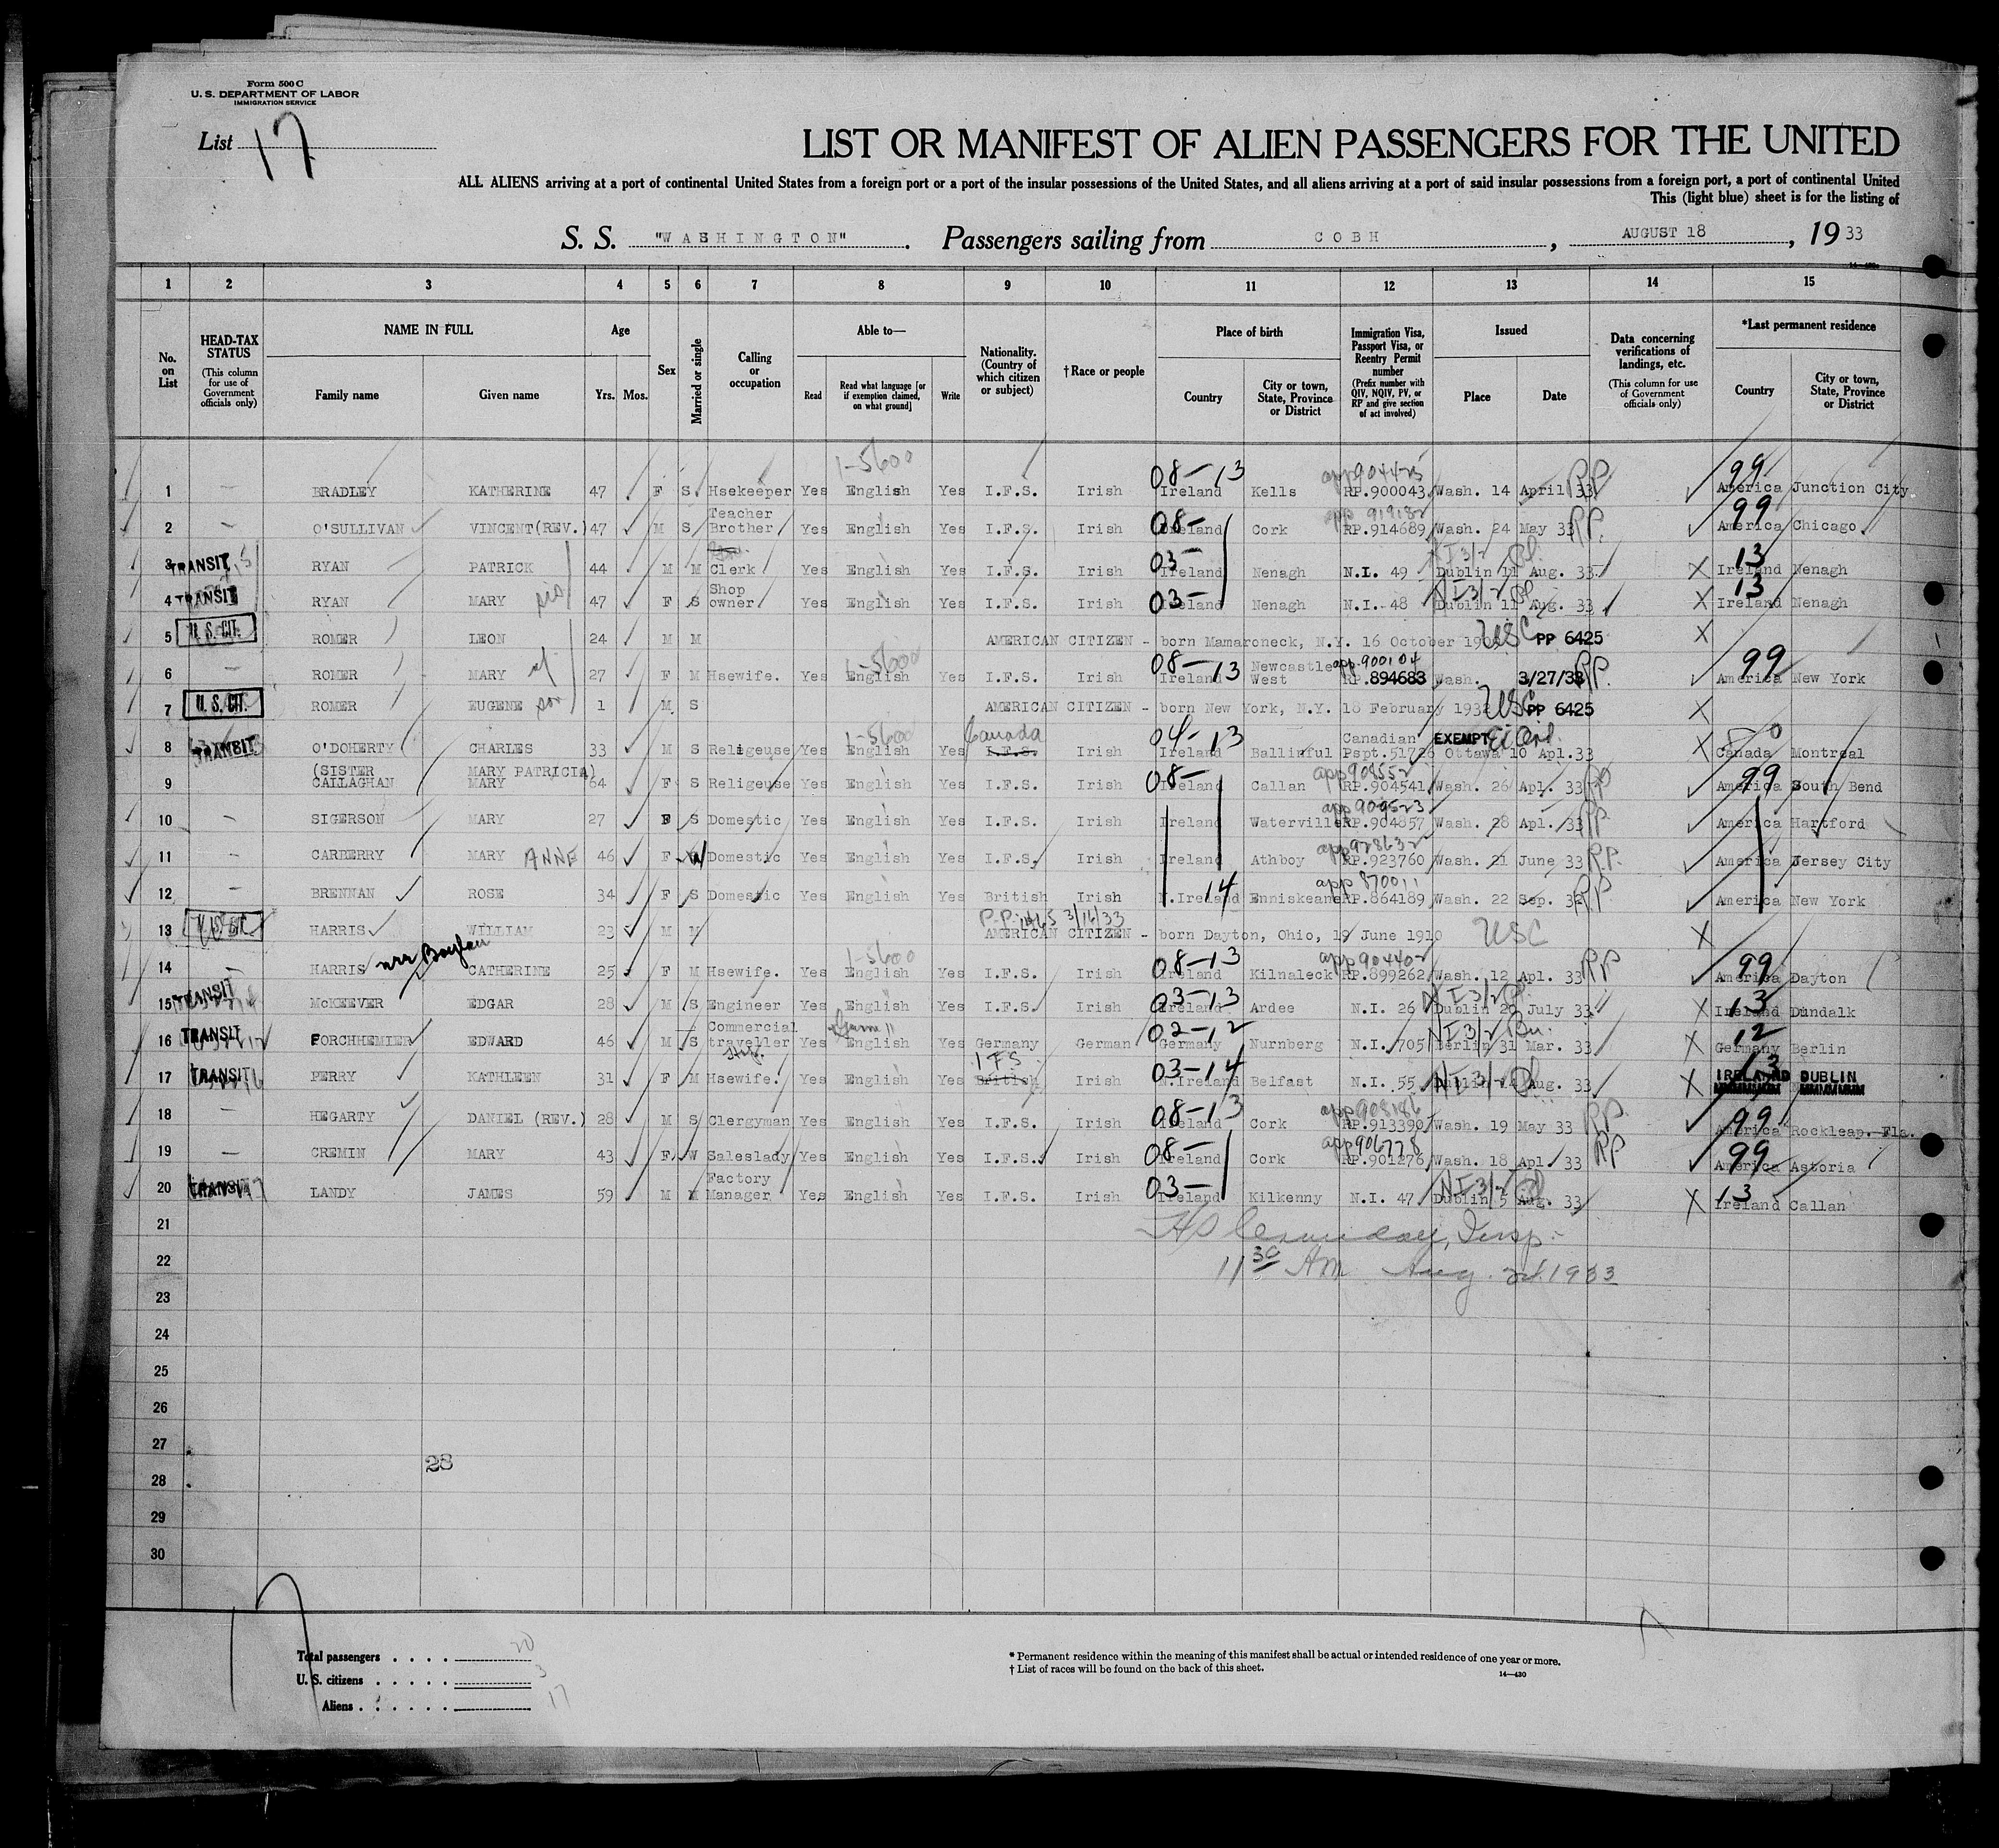 Form 500 C
U. S. DEPARTMENT OF LABOR
IMMIGRATION SERVICE
List 17
LIST OR MANIFEST OF ALIEN PASSENGERS FOR THE UNITED
ALL ALIENS arriving at a port of continental United States from a foreign port or a port of the insular possessions of the United States, and all aliens arriving at a port of said insular possessions from a foreign port, a port of continental United
This (light blue) sheet is for the listing of
S. S. "WASHINGTON". Passengers sailing from COBH, AUGUST 18, 19 33
14—430
1 2 3 4 5 6 7 8 9 10 11 12 13 14 15
No. on List
HEAD-TAX STATUS (This column for use of Government officials only)
NAME IN FULL Family name Given name
Age Yrs. Mos.
Sex
Married or single
Calling or occupation
Able to— Read Read what language [or if exemption claimed, on what ground] Write
Nationality. (Country of which citizen or subject)
†Race or people
Place of birth Country City or town, State, Province or District
Immigration Visa, Passport Visa, or Reentry Permit number (Prefix number with QIV, NQIV, PV, or RP and give section of act involved)
Issued Place Date
Data concerning verifications of landings, etc. (This column for use of Government officials only)
*Last permanent residence Country City or town, State, Province or District
1-5600 08-13 app 904423 99
1 — BRADLEY KATHERINE 47 F S Hsekeeper Yes English Yes I.F.S. Irish Ireland Kells RP.900043 Wash. 14 April 33 RP America Junction City
Teacher 08- app 919182 99
2 — O'SULLIVAN VINCENT(REV.) 47 M S Brother Yes English Yes I.F.S. Irish Ireland Cork RP.914689 Wash. 24 May 33 RP. America Chicago
03- NI 3/2 13
3 TRANSIT RYAN PATRICK 44 M M Clerk Yes English Yes I.F.S. Irish Ireland Nenagh N.I. 49 Dublin 11 Aug. 33 X Ireland Nenagh
Shop 03- NI 3/2 13
4 TRANSIT RYAN MARY sis 47 F S owner Yes English Yes I.F.S. Irish Ireland Nenagh N.I. 48 Dublin 11 Aug. 33 X Ireland Nenagh
5 U. S. CIT. ROMER LEON 24 M M AMERICAN CITIZEN - born Mamaroneck, N.Y. 16 October USC PP 6425 X
1-5600 08-13 Newcastle app.900104 99
6 — ROMER MARY wf 27 F M Hsewife. Yes English Yes I.F.S. Irish Ireland West RP.894683 Wash. 3/27/33 RP. America New York
7 U. S. CIT. ROMER EUGENE son 1 M S AMERICAN CITIZEN - born New York, N.Y. 18 February 1932 USC PP 6425 X
1-5600 Canada 04-13 Canadian EXEMPT
8 TRANSIT O'DOHERTY CHARLES 33 M S Religeuse Yes English Yes I.F.S. Irish Ireland Ballinful Pspt.51726 Ottawa 10 Apl.33 X Canada Montreal
(SISTER MARY PATRICIA) 08- app 908552 99
9 — CALLAGHAN MARY 64 F S Religeuse Yes English Yes I.F.S. Irish Ireland Callan RP.904541 Wash. 26 Apl. 33 RP America South Bend
app 900523
10 — SIGERSON MARY 27 F S Domestic Yes English Yes I.F.S. Irish Ireland Waterville RP.904857 Wash. 28 Apl. 33 RP America Hartford
app 928632
11 — CARBERRY MARY ANNE 46 F W Domestic Yes English Yes I.F.S. Irish Ireland Athboy RP.923760 Wash. 21 June 33 R.P. America Jersey City
14 app 870011
12 — BRENNAN ROSE 34 F S Domestic Yes English Yes British Irish N.Ireland Enniskeane RP.864189 Wash. 22 Sep. 32 RP America New York
P.P. 1465 3/16/33
13 HARRIS WILLIAM 23 M M AMERICAN CITIZEN - born Dayton, Ohio, June 1910 USC X
nee Boylan 1-5600 08-13 app 904402 99
14 — HARRIS CATHERINE 25 F M Hsewife. Yes English Yes I.F.S. Irish Ireland Kilnaleck RP.899262 Wash. 12 Apl. 33 RP America Dayton
03-13 NI 3/2 13
15 TRANSIT McKEEVER EDGAR 28 M S Engineer Yes English Yes I.F.S. Irish Ireland Ardee N.I. 26 Dublin 20 July 33 X Ireland Dundalk
Commercial 02-12 NI 3/2 12
16 TRANSIT FORCHHEMIER EDWARD 46 M S traveller Yes English Yes Germany German Germany Nurnberg N.I. 705 Berlin 31 Mar. 33 X Germany Berlin
I F S 03-14 NI 3/2 13
17 TRANSIT PERRY KATHLEEN 31 F M Hsewife. Yes English Yes British Irish N.Ireland Belfast N.I. 55 Dublin Aug. 33 X IRELAND DUBLIN
08-13 app 908186 99
18 — HEGARTY DANIEL (REV.) 28 M S Clergyman Yes English Yes I.F.S. Irish Ireland Cork RP.913390 Wash. 19 May 33 RP. America Rockleap. Fla.
08- app 906778 99
19 — CREMIN MARY 43 F W Saleslady Yes English Yes I.F.S. Irish Ireland Cork RP.901276 Wash. 18 Apl. 33 RP America Astoria
Factory 03- NI 3/2 13
20 TRANSIT LANDY JAMES 59 M M Manager Yes English Yes I.F.S. Irish Ireland Kilkenny N.I. 47 Dublin 5 Aug. 33 X Ireland Callan
21 Insp.
22 11 30 AM Aug. 1933
23
24
25
26
27
28
28
29
30
17
Total passengers . . . . 20
U. S. citizens . . . . . 3
Aliens . . . . . . 17
* Permanent residence within the meaning of this manifest shall be actual or intended residence of one year or more.
† List of races will be found on the back of this sheet. 14—430